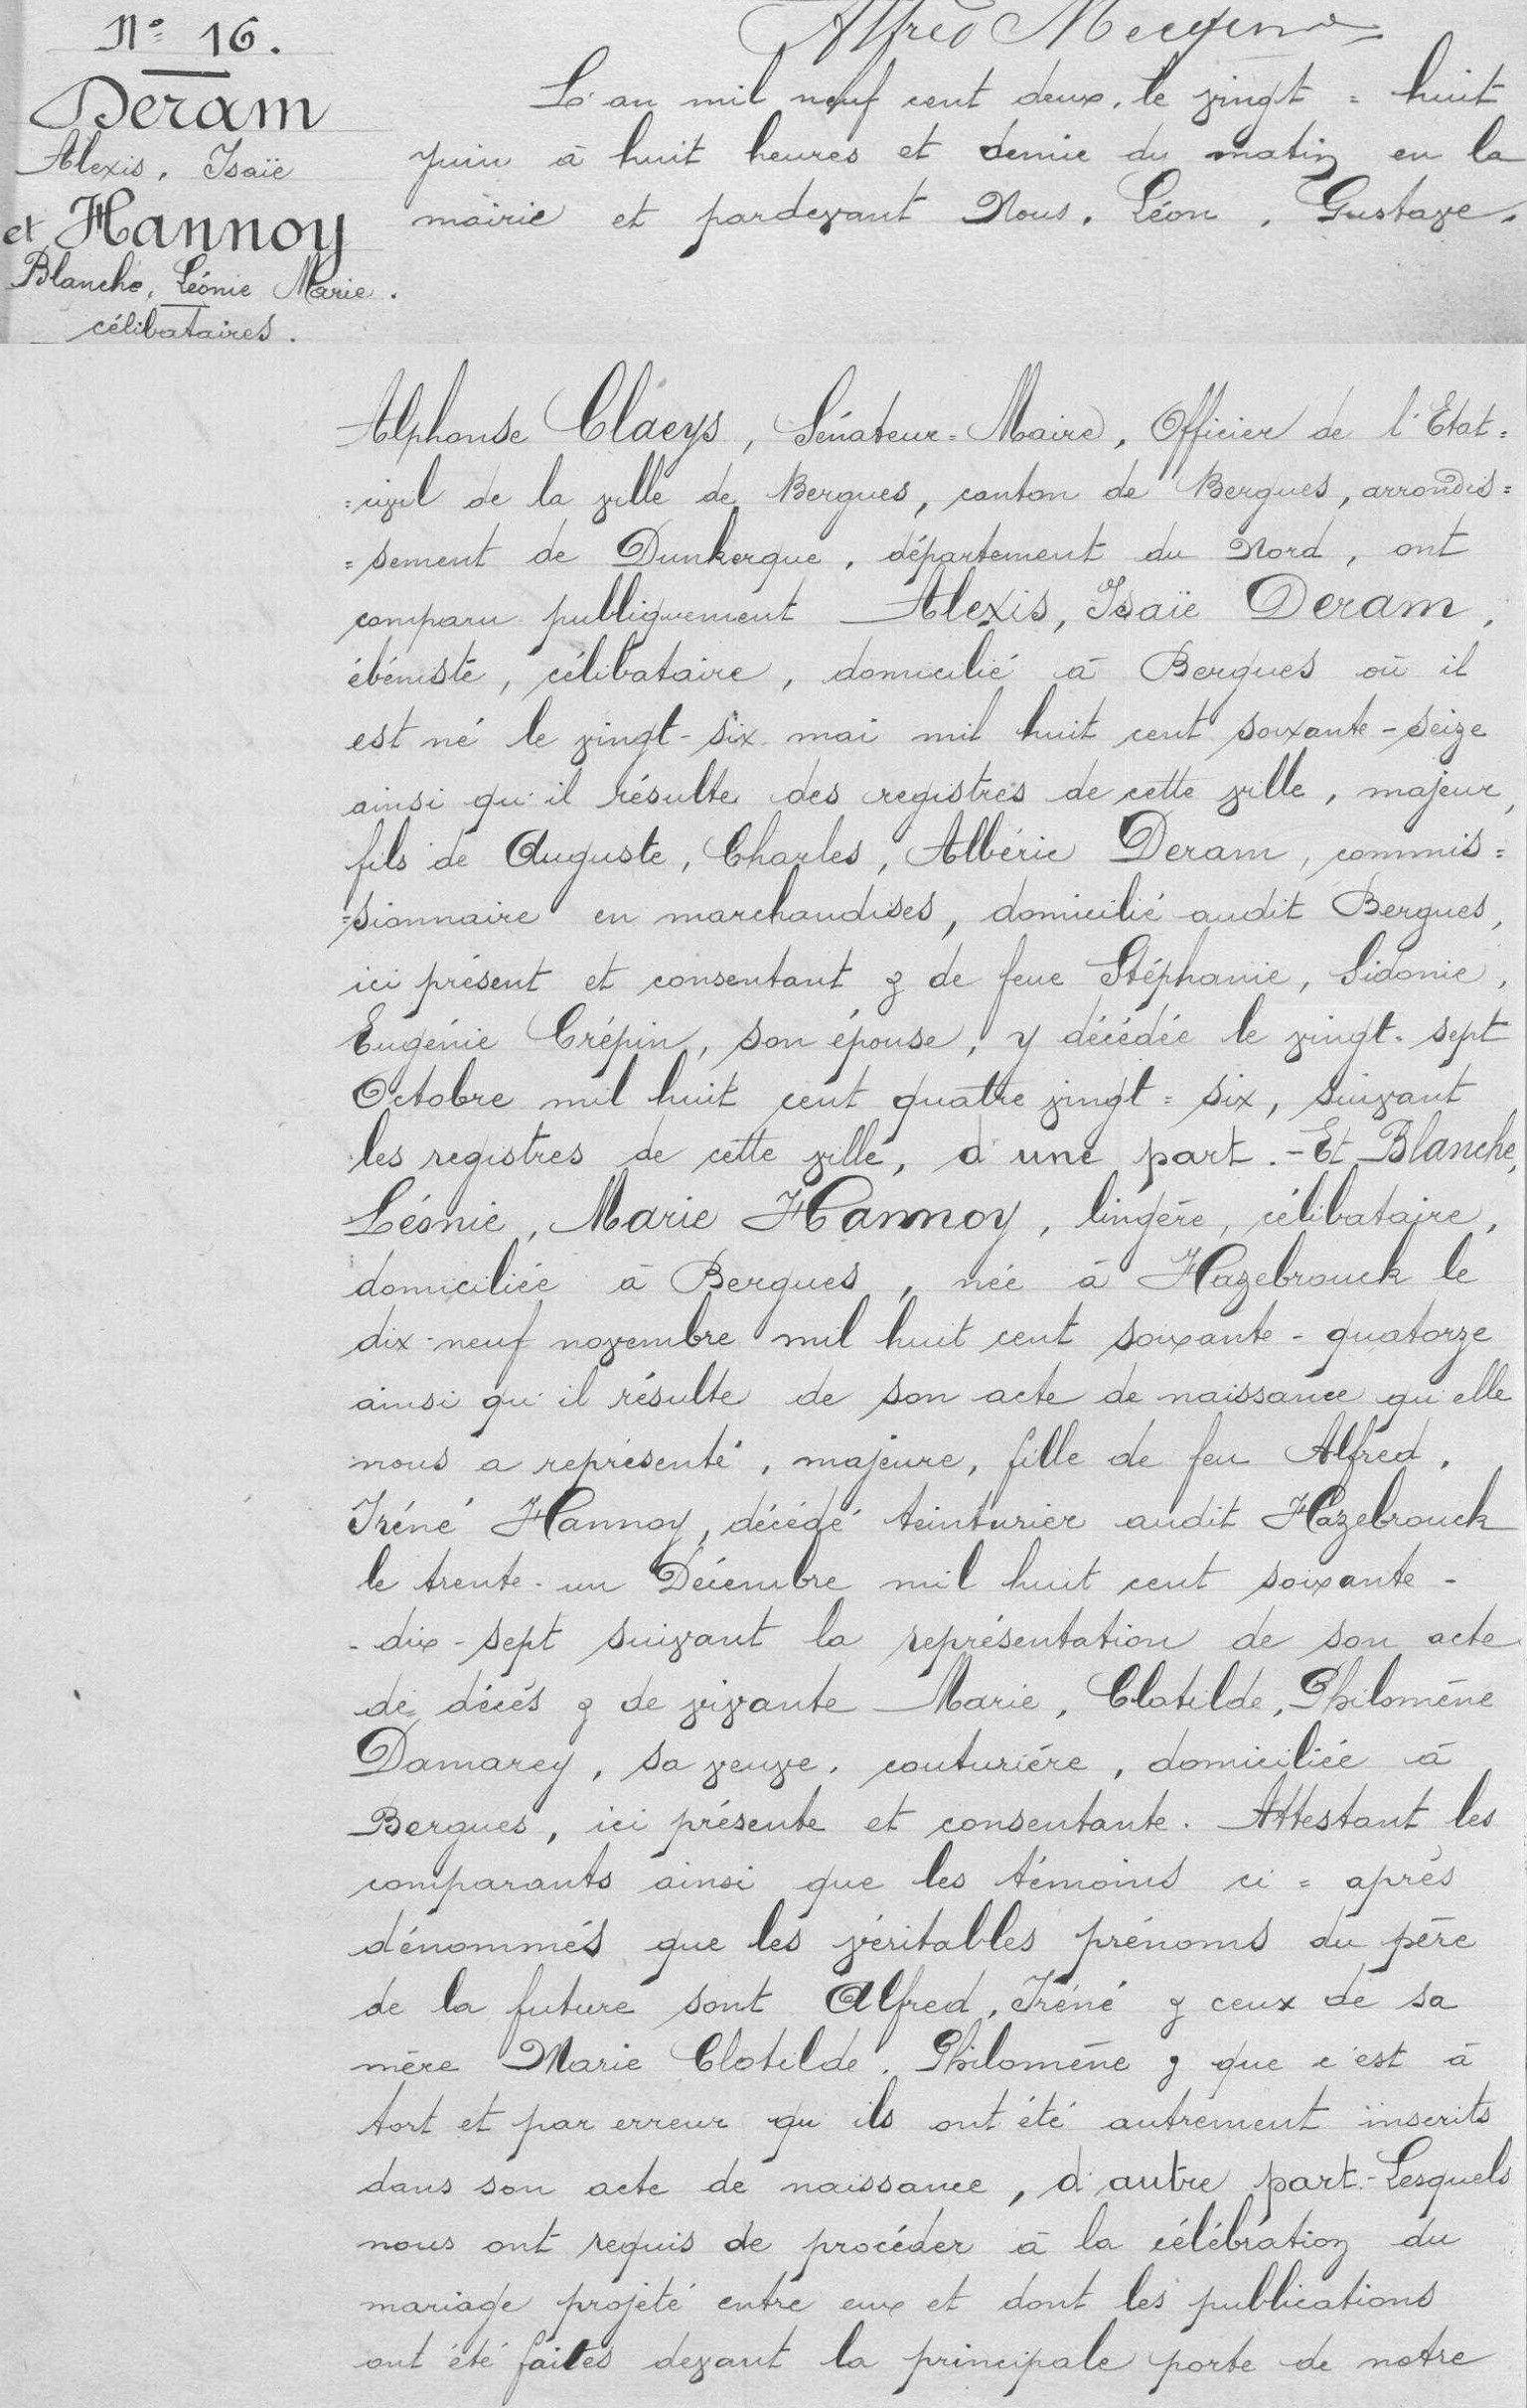 N° 16.
Deram
Alexis, Isaïe
et Hannoy
Blanche, Léonie Marie.
célibataires.
Alfred
L'an mil neuf cent deux, le vingt = huit
juin à huit heures et demie du matin en la
mairie et pardevant Nous, Léon, Gustave,
Alphonse Claeys, Sénateur=Maire, Officier de l'Etat=
=civil de la ville de Bergues, canton de Bergues, arrondis=
=sement de Dunkerque, département du Nord, ont
comparu publiquement Alexis, Isaïe Deram,
ébéniste, célibataire, domicilié à Bergues où il
est né le vingt-six mai mil huit cent soixante-seize
ainsi qu'il résulte des registres de cette ville, majeur,
fils de Auguste, Charles, Albéric Deram, commis=
=sionnaire en marchandises, domicilié audit Bergues,
ici présent et consentant & de feue Stéphanie, Sidonie,
Eugénie Crépin, son épouse, y décédée le vingt-sept
Octobre mil huit cent quatre vingt=six, suivant
les registres de cette ville, d'une part.-Et Blanche,
Léonie, Marie Hannoy, lingère, célibataire,
domiciliée à Bergues, née à Hazebrouck le
dix-neuf novembre mil huit cent soixante-quatorze
ainsi qu'il résulte de son acte de naissance qu'elle
nous a représenté, majeure, fille de feu Alfred,
Iréné Hannoy, décédé teinturier audit Hazebrouck
le trente-un Décembre mil huit cent soixante-
-dix-sept suivant la représentation de son acte
de décès & de vivante Marie, Clotilde, Philomène
Damarey, sa veuve, couturière, domiciliée à
Bergues, ici présente et consentante. Attestant les
comparants ainsi que les témoins ci=après
dénommés que les véritables prénoms du père
de la future sont Alfred, Iréné & ceux de sa
mère Marie Clotilde, Philomène & que c'est à
tort et par erreur qu'ils ont été autrement inscrits
dans son acte de naissance, d'autre part.-Lesquels
nous ont requis de procéder à la célébration du
mariage projeté entre eux et dont les publications
ont été faites devant la principale porte de notre